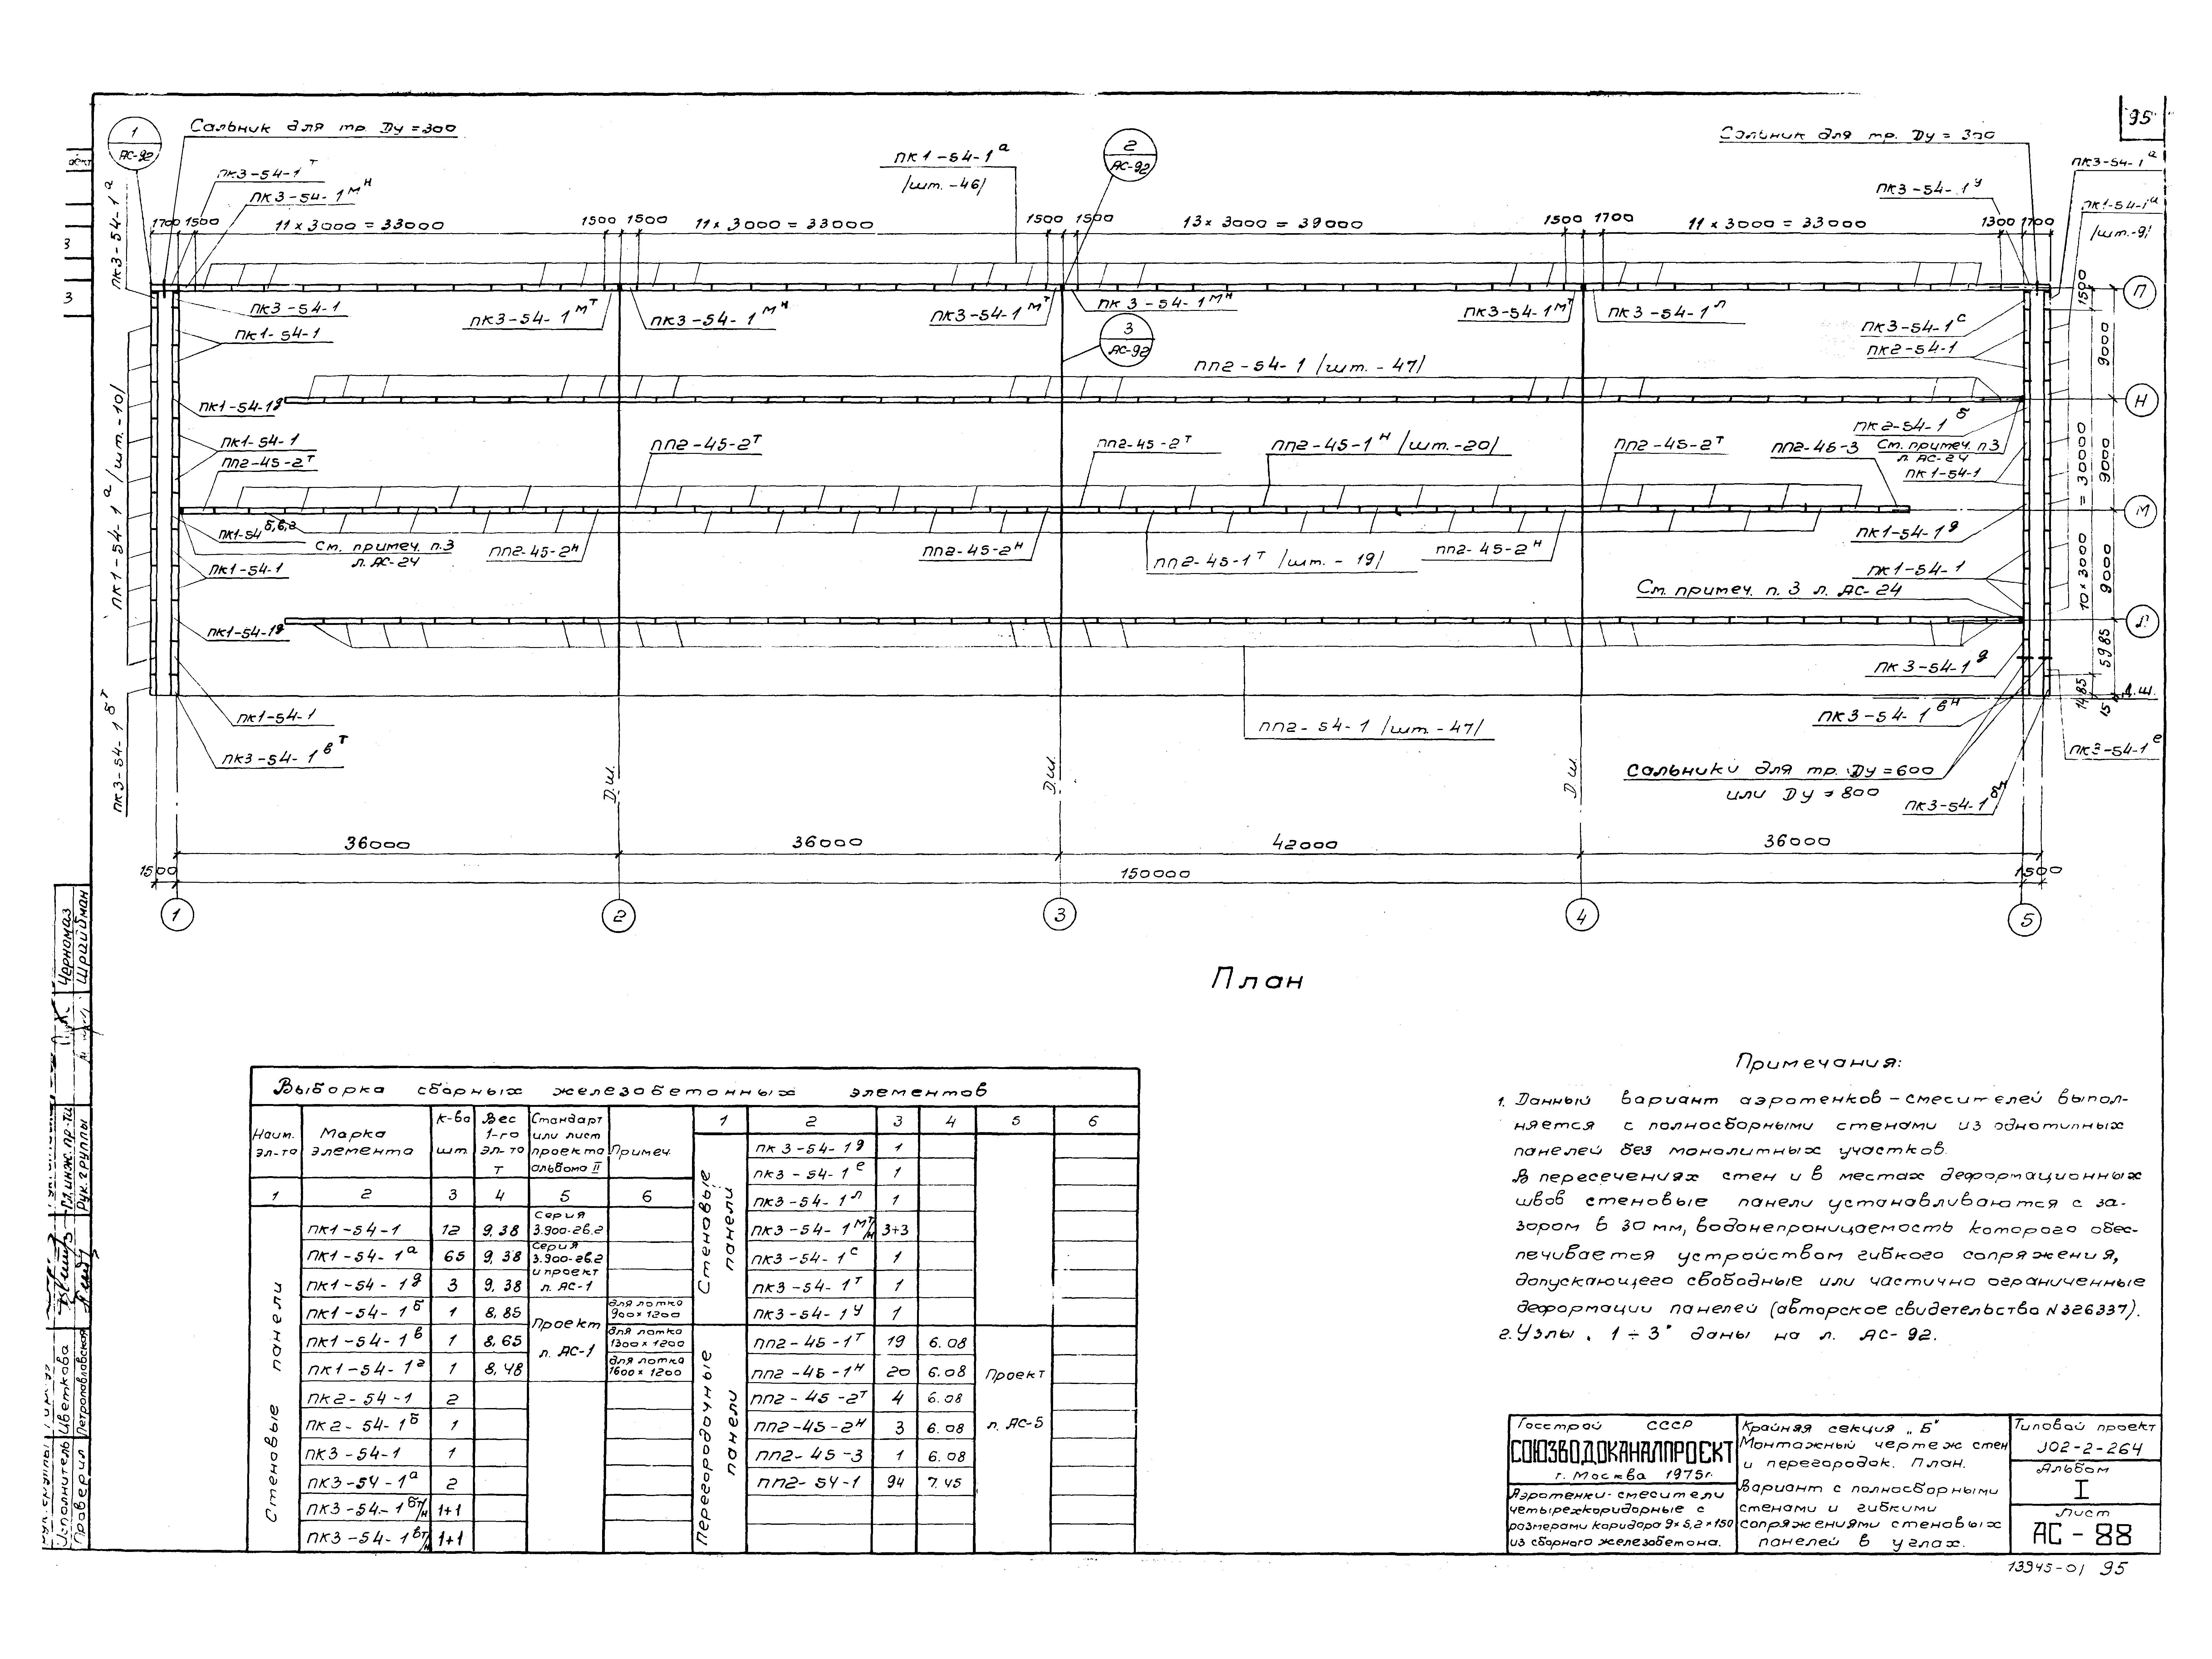 95
1
АС-92
Сальник для тр. Ду=300
ПК3-54-1 т
ПК3-54-1 мн
ПК3-54-1 а
ПК1-54-1 а
/шт.-46/
2
АС-92
Сальник для тр. Ду=300
ПК3-54-1 у
ПК3-54-1 а
ПК1-54-1 а
/шт.-9/
1700 1500 11×3000=33000 1500 1500 11×3000=33000 1500 1500 13×3000=39000 1500 1700 11×3000=33000 1300 1700
ПК3-54-1
ПК1-54-1
ПК3-54-1 мт
ПК3-54-1 мн
ПК3-54-1 мт
ПК3-54-1 мн
ПК3-54-1 мт
ПК3-54-1 л
ПК3-54-1 с
ПК2-54-1
П
1500
9000
3
АС-92
ПП2-54-1 /шт.-47/
ПК1-54-1 а /шт.-10/
ПК1-54-1д
ПК2-54-1 б
Н
ПК1-54-1
ПП2-45-2т
ПП2-45-2т
ПП2-45-2т
ПП2-45-1н /шт.-20/
ПП2-45-2т
ПП2-45-3
См. примеч. п.3
л. АС-24
ПК1-54-1
9000
10×3000 = 30000
М
ПК1-54 б,в,г
См. примеч. п.3
л. АС-24
ПП2-45-2н
ПП2-45-2н
ПП2-45-1т /шт.-19/
ПП2-45-2н
ПК1-54-1д
ПК1-54-1
ПК1-54-1
9000
См. примеч. п.3 л. АС-24
ПК1-54-1д
ПК3-54-1д
5985
1485
15
Д.ш.
ПК1-54-1
ПК3-54-1 вт
ПК3-54-1 бт
ПП2-54-1 /шт.-47/
ПК3-54-1 вн
ПК3-54-1 е
Сальники для тр. Ду=600
или Ду=800
ПК3-54-1
Д.ш.
Д.ш.
Д.ш.
36000 36000 42000 36000
1500 150000 1500
1 2 3 4 5
План
Выборка сборных железобетонных элементов
Наим. эл-та | Марка элемента | К-во шт. | Вес 1-го эл-та т | Стандарт или лист проекта альбома II | Примеч.
1 2 3 4 5 6
Стеновые панели
ПК1-54-1 12 9,38 Серия 3.900-2в.2
ПК1-54-1а 65 9,38 Серия 3.900-2в.2
ПК1-54-1д 3 9,38 и проект л. АС-1
ПК1-54-1б 1 8,85 Проект л. АС-1 для лотка 900×1200
ПК1-54-1в 1 8,65 для лотка 1300×1200
ПК1-54-1г 1 8,48 для лотка 1600×1200
ПК2-54-1 2
ПК2-54-1б 1
ПК3-54-1 1
ПК3-54-1а 2
ПК3-54-1бт/н 1+1
ПК3-54-1вт/н 1+1
1 2 3 4 5 6
Стеновые панели
ПК3-54-1д 1
ПК3-54-1е 1
ПК3-54-1л 1
ПК3-54-1мт/н 3+3
ПК3-54-1с 1
ПК3-54-1т 1
ПК3-54-1у 1
Перегородочные панели
ПП2-45-1т 19 6.08
ПП2-45-1н 20 6.08 Проект
ПП2-45-2т 4 6.08
ПП2-45-2н 3 6.08 л. АС-5
ПП2-45-3 1 6.08
ПП2-54-1 94 7.45
Примечания:
1. Данный вариант аэротенков-смесителей выпол-
няется с полносборными стенами из однотипных
панелей без монолитных участков.
В пересечениях стен и в местах деформационных
швов стеновые панели устанавливаются с за-
зором в 30 мм, водонепроницаемость которого обес-
печивается устройством гибкого сопряжения,
допускающего свободные или частично ограниченные
деформации панелей (авторское свидетельство N326337).
2. Узлы „1÷3" даны на л. АС-92.
Госстрой СССР
СОЮЗВОДОКАНАЛПРОЕКТ
г. Москва 1975г.
Аэротенки-смесители
четырехкоридорные с
размерами коридора 9×5,2×150
из сборного железобетона.
Крайняя секция „Б"
Монтажный чертеж стен
и перегородок. План.
Вариант с полносборными
стенами и гибкими
сопряжениями стеновых
панелей в углах.
Типовой проект
902-2-264
Альбом
I
Лист
АС-88
13945-01 95
Черномаз
Шрайбман
Гл.инж.пр-та
Рук. группы
Исполнитель Цветкова
Проверил Петропавловская